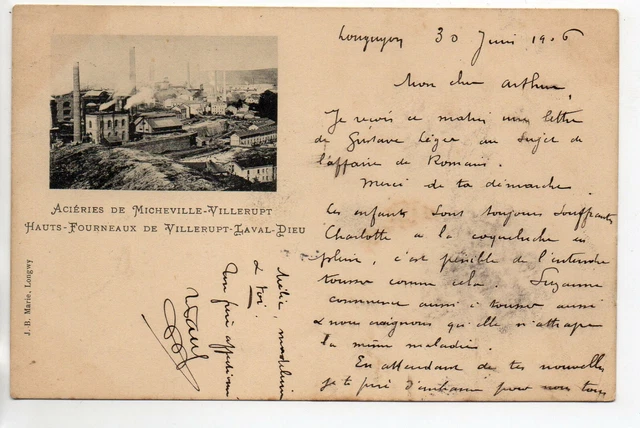 Longuyon 30 Juin 1906
Mon cher Arthur,
Je reçois ce matin une lettre
de Gustave Léger au sujet de
l'affaire de Romani.
Merci de ta démarche
Les enfants sont toujours souffrants
Charlotte a la coqueluche en
plein, c'est pénible de l'entendre
tousser comme cela. Suzanne
commence aussi à tousser aussi
& nous craignons qu'elle n'attrape
la même maladie.
En attendant de tes nouvelles
je te prie d'embrasser pour nous tous
Mélie, Madeleine
& toi.
Ton frère affectionné
Paul
ACIÉRIES DE MICHEVILLE-VILLERUPT
HAUTS-FOURNEAUX DE VILLERUPT-LAVAL-DIEU
J. B. Marie, Longwy